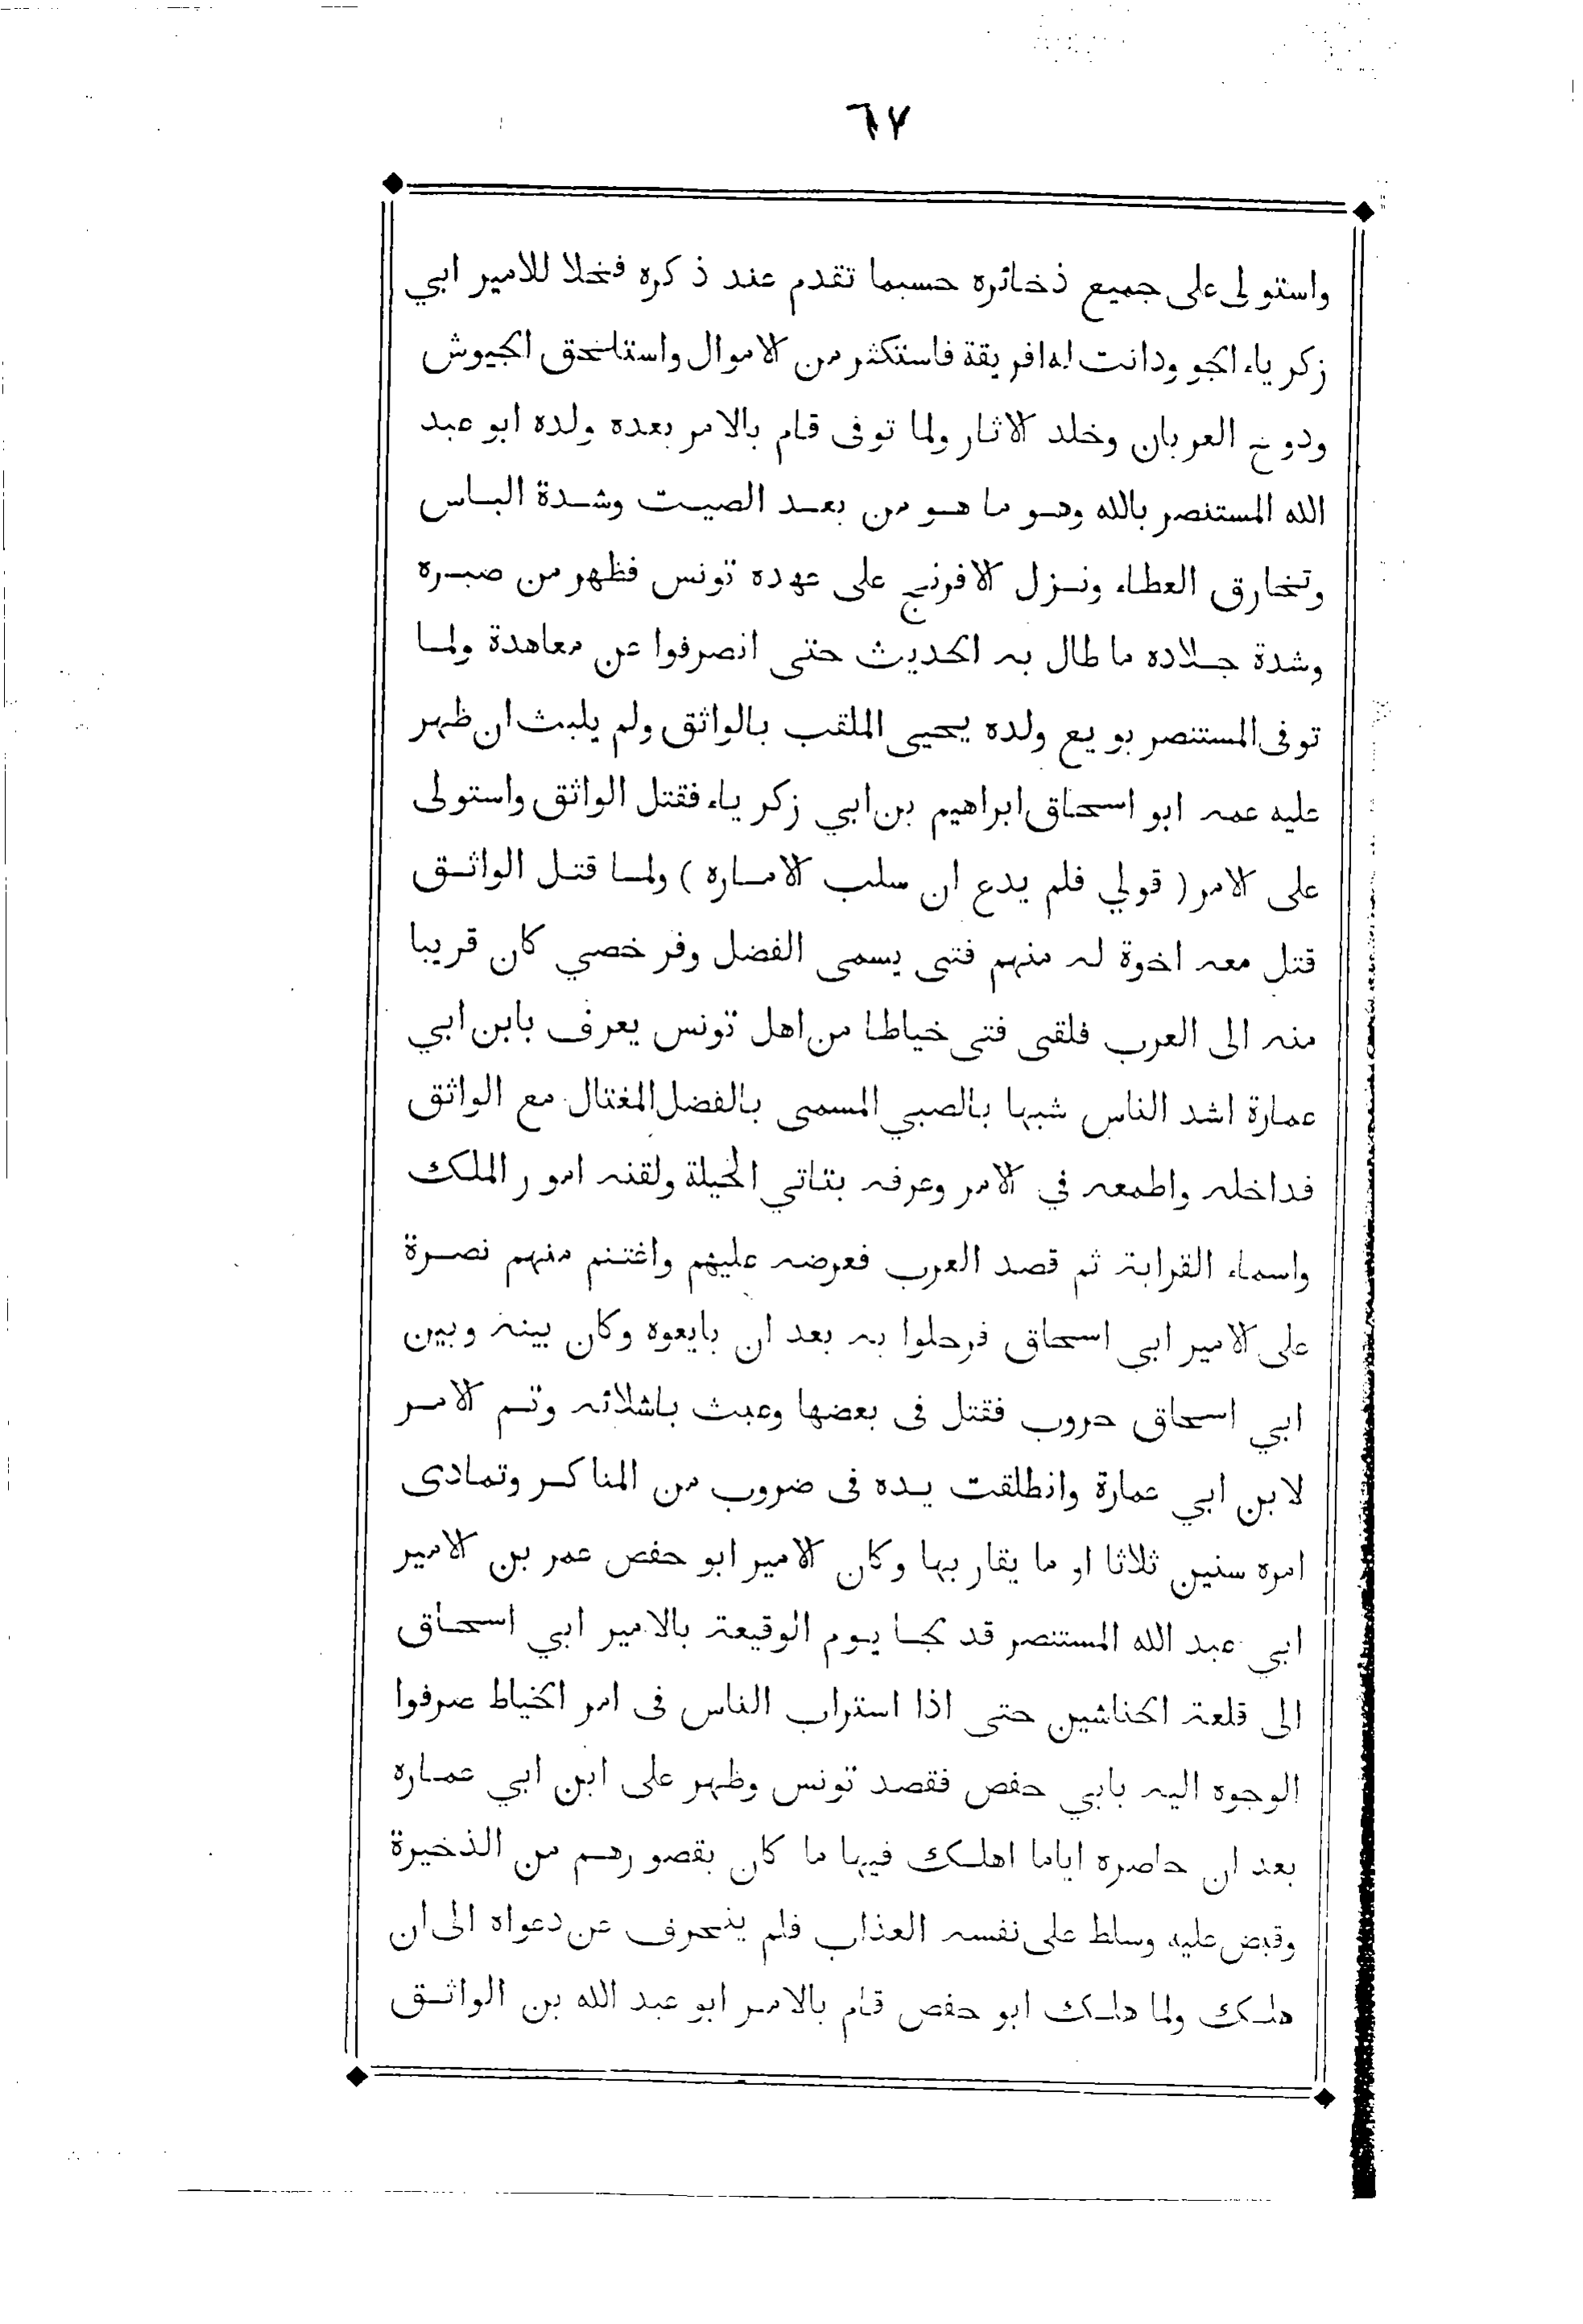 ٦٧
واستولى على جميع ذخائره حسبما تقدم عند ذكره فخلا للامير ابي
زكرياء الجو ودانت له افريقة فاستكثر من الاموال واستلحق الجيوش
ودوخ العربان وخلد الاثار ولما توفى قام بالامر بعده ولده ابو عبد
الله المستنصر بالله وهو ما هو من بعد الصيت وشدة الباس
وتخارق العطاء ونزل الافرنج على عهده تونس فظهر من صبره
وشدة جلاده ما طال به الحديث حتى انصرفوا عن معاهدة ولما
توفى المستنصر بويع ولده يحيى الملقب بالواثق ولم يلبث ان ظهر
عليه عمه ابو اسحاق ابراهيم بن ابي زكرياء فقتل الواثق واستولى
على الامر ( قولي فلم يدع ان سلب الاماره ) ولما قتل الواثق
قتل معه اخوة له منهم فتى يسمى الفضل وفر خصي كان قريبا
منه الى العرب فلقى فتى خياطا من اهل تونس يعرف بابن ابي
عمارة اشد الناس شبها بالصبي المسمى بالفضل المغتال مع الواثق
فداخله واطمعه في الامر وعرفه بتاتي الحيلة ولقنه امور الملك
واسماء القرابة ثم قصد العرب فعرضه عليهم واغتنم منهم نصرة
على الامير ابي اسحاق فرحلوا به بعد ان بايعوه وكان بينه وبين
ابي اسحاق حروب فقتل فى بعضها وعبث باشلائه وتم الامر
لابن ابي عمارة وانطلقت يده فى ضروب من المناكر وتمادى
امره سنين ثلاثا او ما يقاربها وكان الامير ابو حفص عمر بن الامير
ابي عبد الله المستنصر قد نجا يوم الوقيعة بالامير ابي اسحاق
الى قلعة الخناشين حتى اذا استراب الناس فى امر الخياط صرفوا
الوجوه اليه بابي حفص فقصد تونس وظهر على ابن ابي عماره
بعد ان حاصره اياما اهلك فيها ما كان بقصورهم من الذخيرة
وقبض عليه وسلط على نفسه العذاب فلم ينحرف عن دعواه الى ان
هلك ولما هلك ابو حفص قام بالامر ابو عبد الله بن الواثق